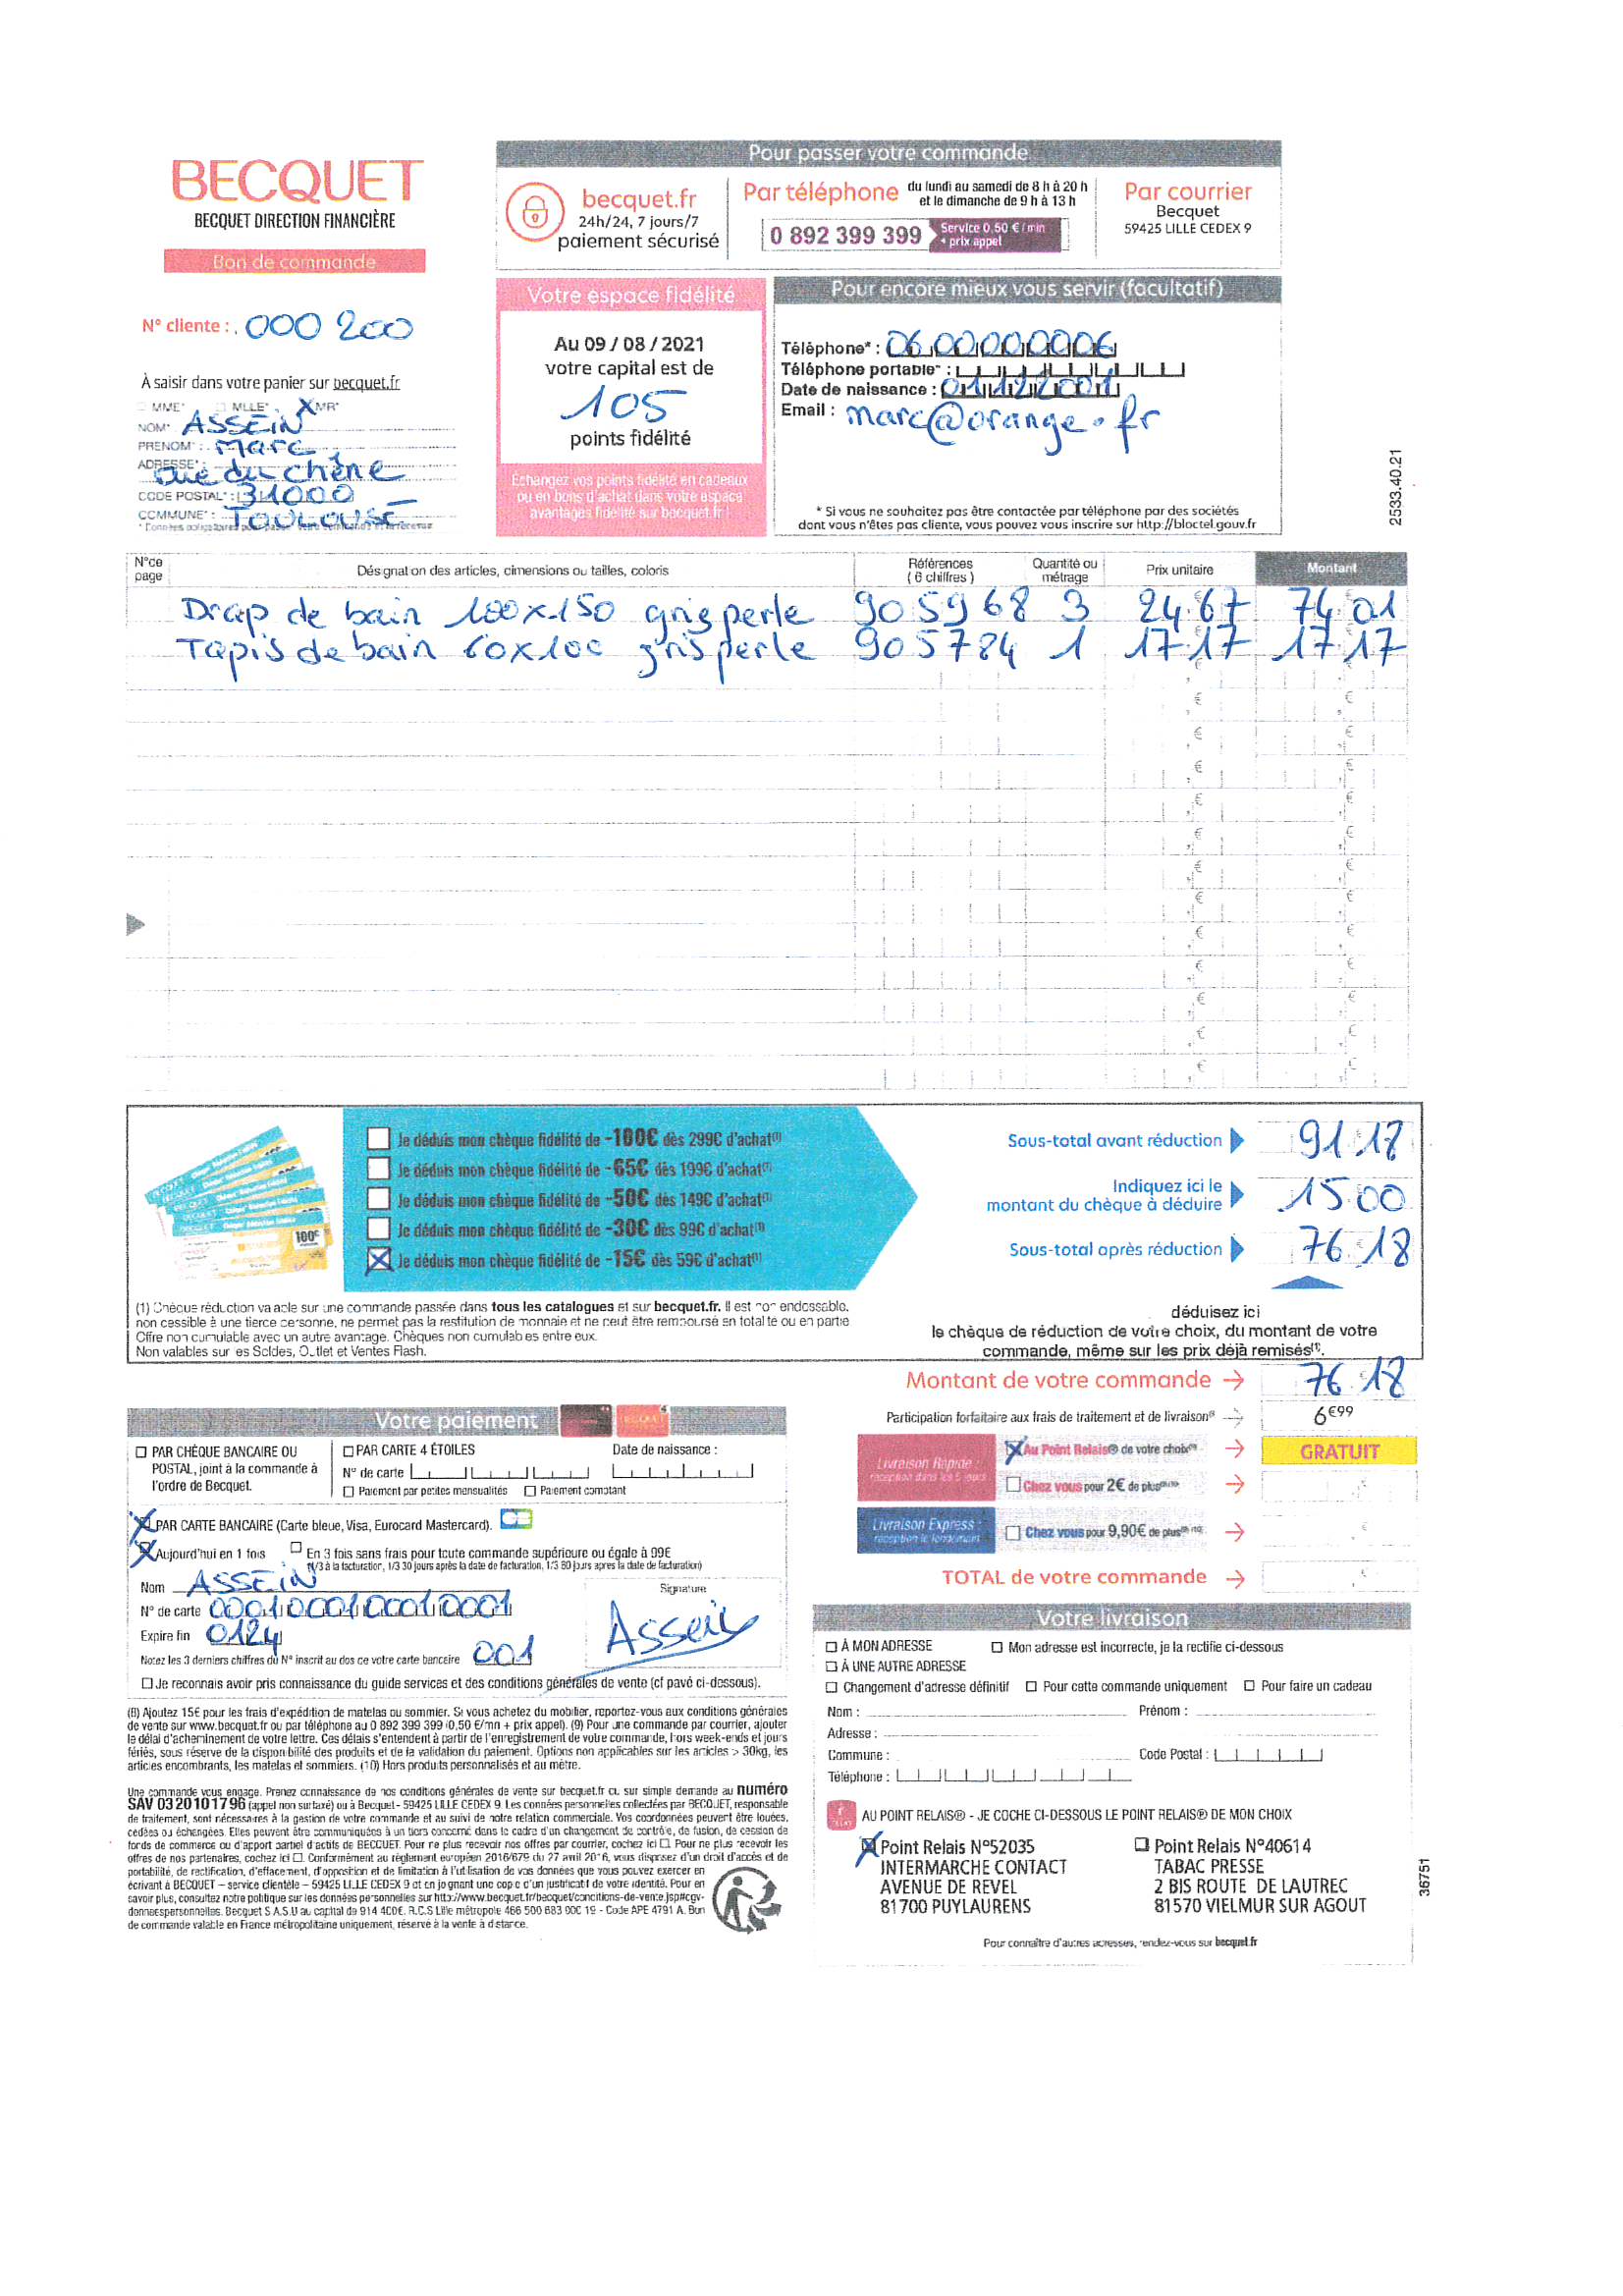 BECQUET
BECQUET DIRECTION FINANCIÈRE
Bon de commande
N° cliente : 000 200
À saisir dans votre panier sur becquet.fr
MME* MLLE* X MR*
NOM* ASSEIN
PRENOM* : Marc
ADRESSE* :
rue du chêne
CODE POSTAL* : 31000
COMMUNE* : TOULOUSE
Pour passer votre commande
becquet.fr
24h/24, 7 jours/7
paiement sécurisé
Par téléphone du lundi au samedi de 8 h à 20 h
et le dimanche de 9 h à 13 h
0 892 399 399 Service 0,50 € / min
+ prix appel
Par courrier
Becquet
59425 LILLE CEDEX 9
Votre espace fidélité
Au 09 / 08 / 2021
votre capital est de
105
points fidélité
Echangez vos points fidélité en cadeaux
ou en bons d'achat dans votre espace
avantages fidélité sur becquet.fr !
Pour encore mieux vous servir (facultatif)
Téléphone* : 06 00000006
Téléphone portable* :
Date de naissance : 01122001
Email : marc@orange.fr
* Si vous ne souhaitez pas être contactée par téléphone par des sociétés
dont vous n'êtes pas cliente, vous pouvez vous inscrire sur http://bloctel.gouv.fr
2533.40.21
N° de page Désignation des articles, dimensions ou tailles, coloris Références (6 chiffres) Quantité ou métrage Prix unitaire Montant
Drap de bain 100x150 gris perle 905968 3 24.67 74.01
Tapis de bain 60x100 gris perle 905784 1 17.17 17.17
Je déduis mon chèque fidélité de -100€ dès 299€ d'achat(1)
Je déduis mon chèque fidélité de -65€ dès 199€ d'achat(1)
Je déduis mon chèque fidélité de -50€ dès 149€ d'achat(1)
Je déduis mon chèque fidélité de -30€ dès 99€ d'achat(1)
X Je déduis mon chèque fidélité de -15€ dès 59€ d'achat(1)
Sous-total avant réduction 91.18
Indiquez ici le
montant du chèque à déduire 15.00
Sous-total après réduction 76.18
(1) Chèque réduction valable sur une commande passée dans tous les catalogues et sur becquet.fr. Il est non endossable,
non cessible à une tierce personne, ne permet pas la restitution de monnaie et ne peut être remboursé en totalité ou en partie
Offre non cumulable avec un autre avantage. Chèques non cumulables entre eux.
Non valables sur les Soldes, Outlet et Ventes Flash.
déduisez ici
le chèque de réduction de votre choix, du montant de votre
commande, même sur les prix déjà remisés(1).
Montant de votre commande → 76.18
Participation forfaitaire aux frais de traitement et de livraison(8) → 6€99
Livraison Rapide :
réception dans les 5 jours
X Au Point Relais® de votre choix → GRATUIT
Chez vous pour 2€ de plus →
Livraison Express :
réception le lendemain
Chez vous pour 9,90€ de plus →
TOTAL de votre commande →
Votre paiement
PAR CHÈQUE BANCAIRE OU
POSTAL, joint à la commande à
l'ordre de Becquet.
PAR CARTE 4 ÉTOILES Date de naissance :
N° de carte
Paiement par petites mensualités Paiement comptant
X PAR CARTE BANCAIRE (Carte bleue, Visa, Eurocard Mastercard).
X Aujourd'hui en 1 fois En 3 fois sans frais pour toute commande supérieure ou égale à 99€
(1/3 à la facturation, 1/3 30 jours après la date de facturation, 1/3 60 jours après la date de facturation)
Nom ASSEIN
Signature
N° de carte 0001000100010001
Assein
Expire fin 0124
Notez les 3 derniers chiffres du N° inscrit au dos de votre carte bancaire 001
Je reconnais avoir pris connaissance du guide services et des conditions générales de vente (cf pavé ci-dessous).
(8) Ajoutez 15€ pour les frais d'expédition de matelas ou sommier. Si vous achetez du mobilier, reportez-vous aux conditions générales
de vente sur www.becquet.fr ou par téléphone au 0 892 399 399 (0,50 €/mn + prix appel). (9) Pour une commande par courrier, ajouter
le délai d'acheminement de votre lettre. Ces délais s'entendent à partir de l'enregistrement de votre commande, hors week-ends et jours
fériés, sous réserve de la disponibilité des produits et de la validation du paiement. Options non applicables sur les articles > 30kg, les
articles encombrants, les matelas et sommiers. (10) Hors produits personnalisés et au mètre.
Une commande vous engage. Prenez connaissance de nos conditions générales de vente sur becquet.fr ou sur simple demande au numéro
SAV 0320101796 (appel non surtaxé) ou à Becquet - 59425 LILLE CEDEX 9. Les données personnelles collectées par BECQUET, responsable
de traitement, sont nécessaires à la gestion de votre commande et au suivi de notre relation commerciale. Vos coordonnées peuvent être louées,
cédées ou échangées. Elles peuvent être communiquées à un tiers concerné dans le cadre d'un changement de contrôle, de fusion, de cession de
fonds de commerce ou d'apport partiel d'actifs de BECQUET. Pour ne plus recevoir nos offres par courrier, cochez ici ☐. Pour ne plus recevoir les
offres de nos partenaires, cochez ici ☐. Conformément au règlement européen 2016/679 du 27 avril 2016, vous disposez d'un droit d'accès et de
portabilité, de rectification, d'effacement, d'opposition et de limitation à l'utilisation de vos données que vous pouvez exercer en
écrivant à BECQUET – service clientèle – 59425 LILLE CEDEX 9 et en joignant une copie d'un justificatif de votre identité. Pour en
savoir plus, consultez notre politique sur les données personnelles sur http://www.becquet.fr/becquet/conditions-de-vente.jsp#cgv-
donneespersonnelles. Becquet S.A.S.U au capital de 914 400€. R.C.S Lille métropole 466 500 683 000 19 - Code APE 4791 A. Bon
de commande valable en France métropolitaine uniquement, réservé à la vente à distance.
Votre livraison
À MON ADRESSE Mon adresse est incorrecte, je la rectifie ci-dessous
À UNE AUTRE ADRESSE
Changement d'adresse définitif Pour cette commande uniquement Pour faire un cadeau
Nom : Prénom :
Adresse :
Commune : Code Postal :
Téléphone :
AU POINT RELAIS® - JE COCHE CI-DESSOUS LE POINT RELAIS® DE MON CHOIX
X Point Relais N°52035
INTERMARCHE CONTACT
AVENUE DE REVEL
81700 PUYLAURENS
Point Relais N°40614
TABAC PRESSE
2 BIS ROUTE DE LAUTREC
81570 VIELMUR SUR AGOUT
Pour connaître d'autres adresses, rendez-vous sur becquet.fr
36751